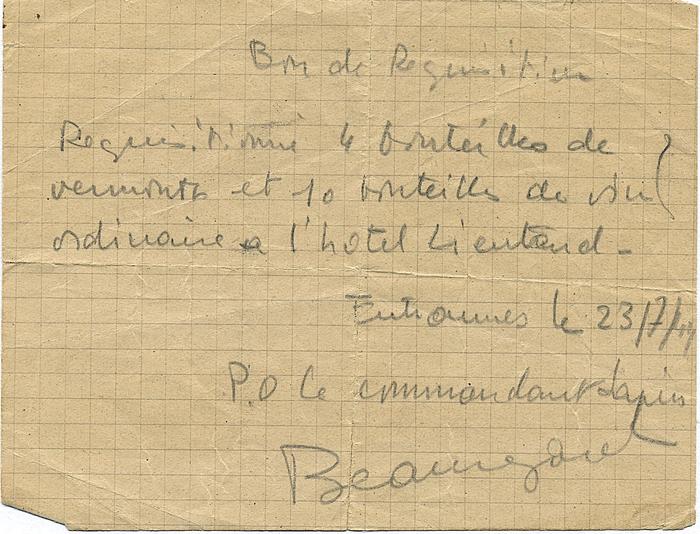 Bon de Requisition
Requisitionné 4 bouteilles de
vermouth et 10 bouteilles de vin
ordinaire a l'hotel Lieutaud -
Entraunes le 23/7/44
P.O le commandant Lapin
Beauregard